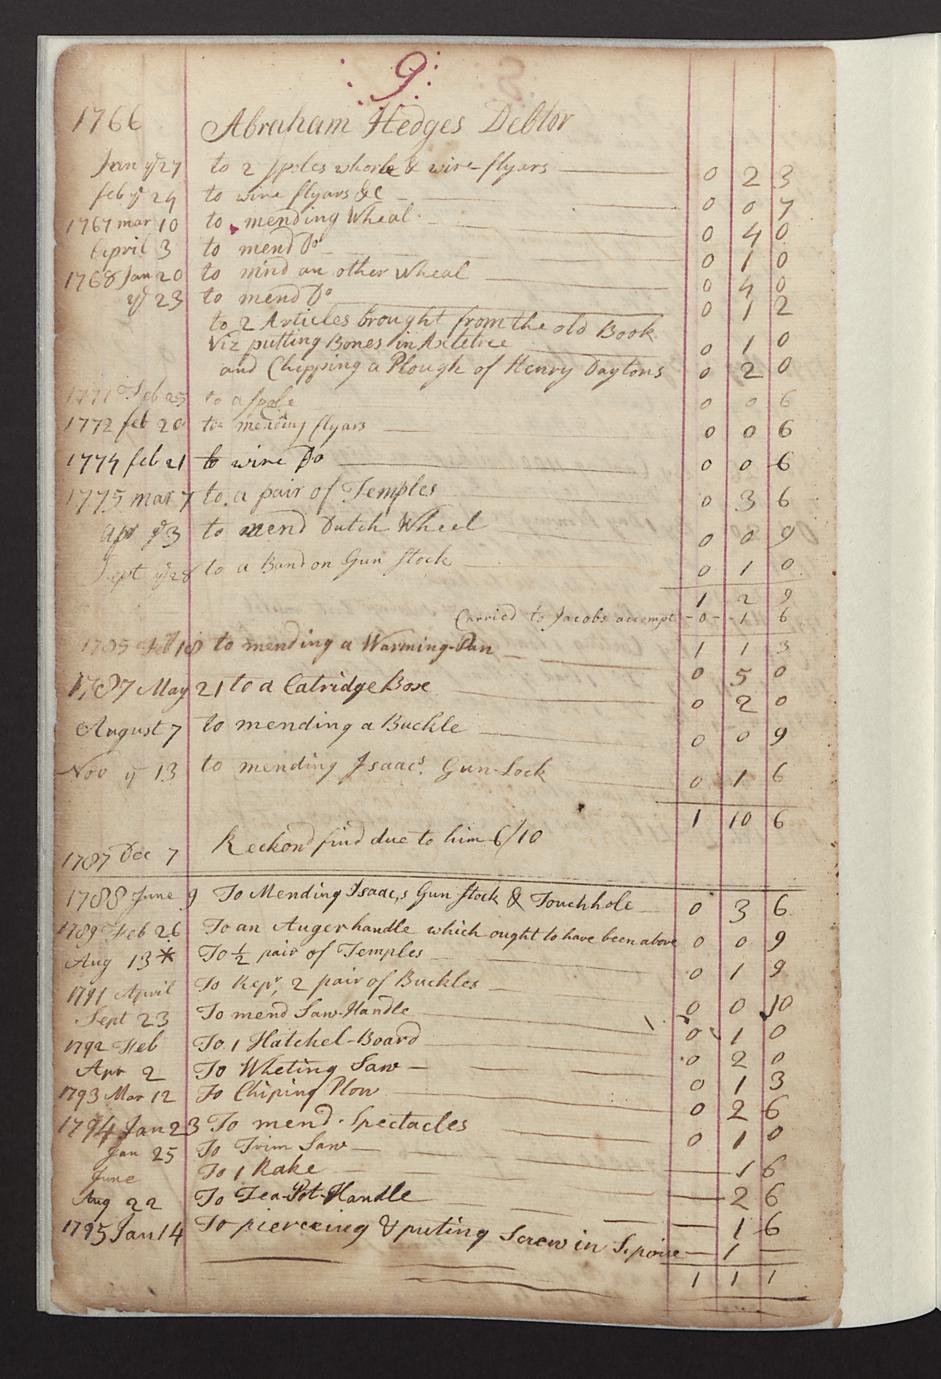 9
1766 Abraham Hedges Debtor
Jan ye 27 to 2 spoles whorle & wire flyers 0 2 3
feb ye 24 to wire flyars &c 0 0 7
1767 mar 10 to mending Wheal 0 4 0
April 3 to mend Do 0 1 0
1768 Jan 20 to mind an other Wheal 0 4 0
ye 23 to mend Do 0 1 2
to 2 Articles brought from the old Book
Viz putting Bones in Axletree 0 1 0
and Chipping a Plough of Henry Daytons 0 2 0
1771 Feb 25 to a spole 0 0 6
1772 feb 20 to mending flyars 0 0 6
1774 feb 21 to wire Do 0 0 6
1775 mar 7 to a pair of Temples 0 3 6
Apr ye 3 to mend Dutch Wheel 0 0 9
Sept ye 28 to a Band on Gun stock 0 1 0
1 2 9
Carried to Jacobs accompt -0- -1 6
1785 18 to mending a Warming-Pan 1 1 3
0 5 0
1787 May 21 to a Catridge Box 0 2 0
August 7 to mending a Buckle 0 0 9
Nov ye 13 to mending Isaacs Gun-Lock 0 1 6
1 10 6
1787 Dec 7 Reckond find due to him 6/10
1788 June 9 To Mending Isaac,s Gun Stock & Touchhole 0 3 6
1789 Feb 26 To an Auger handle which ought to have been above 0 0 9
Aug 13 * To ½ pair of Temples 0 1 9
1791 April To Repr, 2 pair of Buckles 0 0 10
Sept 23 To mend Saw-Handle 0 1 0
1792 Feb To 1 Hatchel-Board 0 2 0
Apr 2 To Wheting Saw 0 1 3
1793 Mar 12 To Chiping Plow 0 2 6
1794 Jan 23 To mend Spectacles 0 1 0
Jan 25 To Trim Saw 1 6
June To 1 Rake 2 6
Aug 22 To Tea-Pot-Handle 1 6
1795 Jan 14 To pierceing & puting Screw in 1
1 1 1